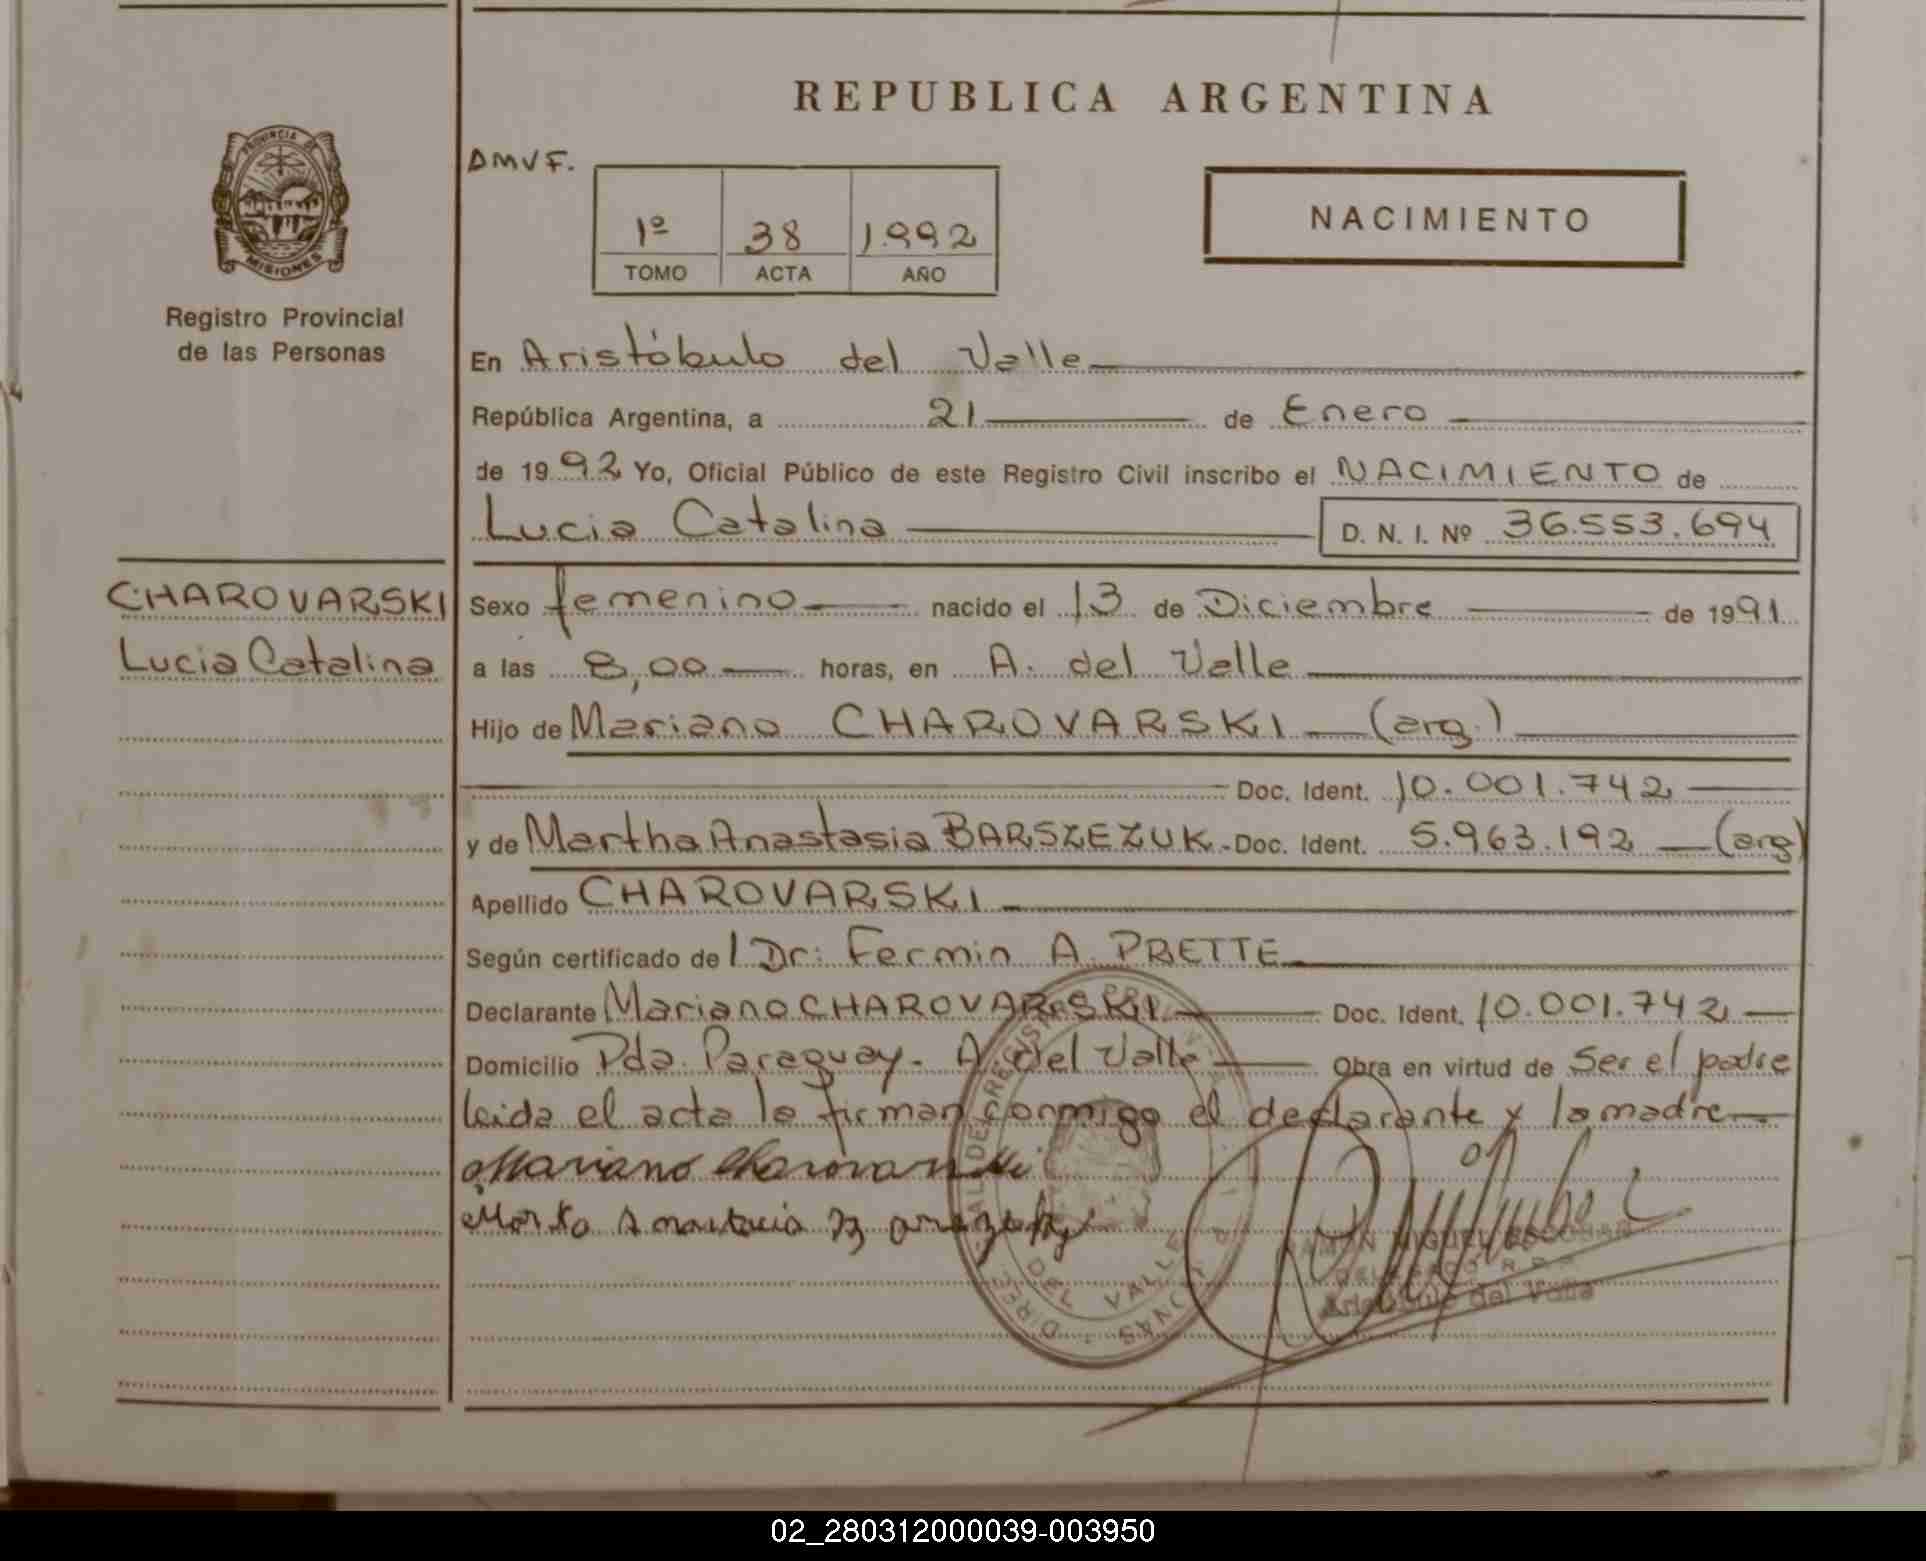 REPUBLICA ARGENTINA
PROVINCIA DE
MISIONES
Registro Provincial
de las Personas
DMVF.
1º 38 1.992
TOMO ACTA AÑO
NACIMIENTO
En Aristóbulo del Valle
República Argentina, a 21 de Enero
de 1992 Yo, Oficial Público de este Registro Civil inscribo el NACIMIENTO de
Lucia Catalina D. N. I. Nº 36.553.694
CHAROVARSKI
Lucia Catalina
Sexo femenino nacido el 13 de Diciembre de 1991
a las 8,00 horas, en A. del Valle
Hijo de Mariano CHAROVARSKI (arg.)
Doc. Ident. 10.001.742
y de Martha Anastasia BARSZEZUK - Doc. Ident. 5.963.192 (arg)
Apellido CHAROVARSKI
Según certificado del Dr: Fermin A. PRETTE
Declarante Mariano CHAROVARSKI Doc. Ident. 10.001.742
Domicilio Pda. Paraguay - A. del Valle Obra en virtud de Ser el padre
leida el acta la firman conmigo el declarante y la madre
Mariano
RAMON MIGUEL ESCOBAR
Aristóbulo del Valle
DEL VALLE
02_280312000039-003950